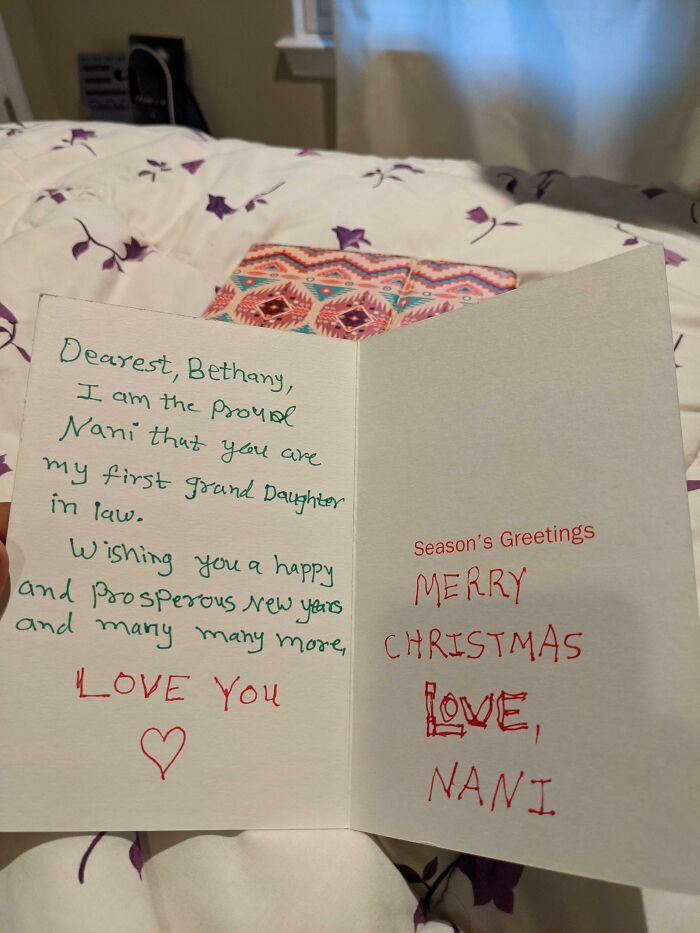 Dearest, Bethany,
I am the Proud
Nani that you are
my first grand Daughter
in law.
Wishing you a happy
and Prosperous New years
and many many more,
LOVE YOU
Season's Greetings
MERRY
CHRISTMAS
LOVE,
NANI